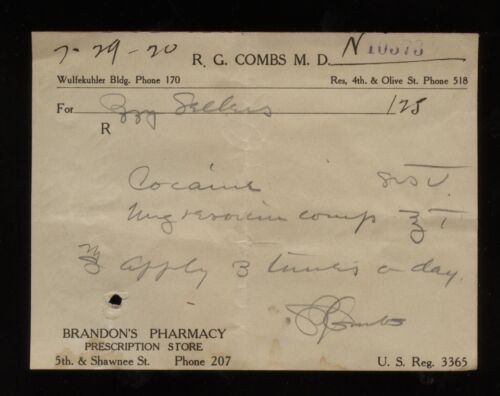 7-29-20
R. G. COMBS M. D.
N 10373
Wulfekuhler Bldg. Phone 170
Res, 4th. & Olive St. Phone 518
For Sellers 125
R
Cocaine grs V.
Ung comp ʒ I
apply 3 times a day.
Combs
BRANDON'S PHARMACY
PRESCRIPTION STORE
5th. & Shawnee St. Phone 207
U. S. Reg. 3365